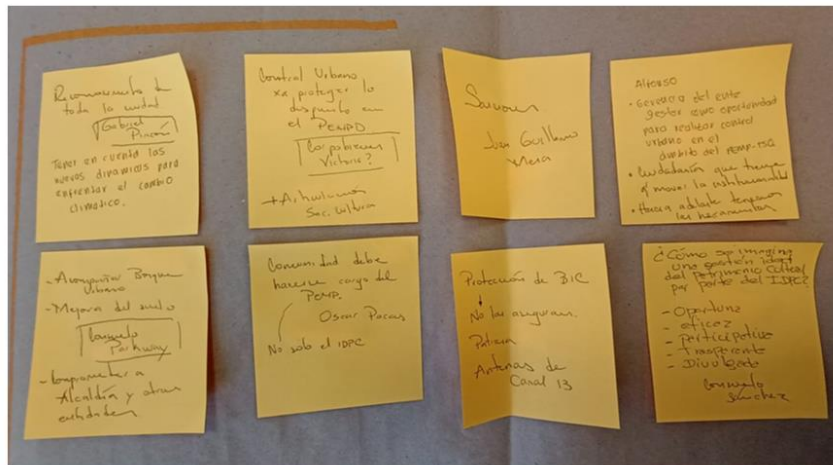 toda la ciudad
Gabriel
Tener en cuenta las
nuevas dinámicas para
enfrentar el cambio
climático.
Control Urbano
xa proteger lo
dispuesto en
el PEMPD.
Victoria?
Sec. Cultura
Juan Guillermo
Alfonso
• Gerencia del ente
gestor como oportunidad
para realizar control
urbano en el
ámbito del PEMP-TSQ
• Ciudadanía que
mover la institucionalidad
• Hacia adelante
las herramientas
Bosque
Urbano
- Mejora del
Consuelo
Parkway
- Comprometer a
Alcaldía y otras
entidades.
Comunidad debe
hacerse cargo del
PEMP.
Oscar
No solo el IDPC
Protección de BIC
No las aseguran.
Patricia
Antenas de
Canal 13
¿Cómo se imagina
una gestión ideal
del Patrimonio Cultural
por parte del IDPC?
- Oportuna
- eficaz
- participativa
- transparente
- Divulgada
Consuelo
Sánchez